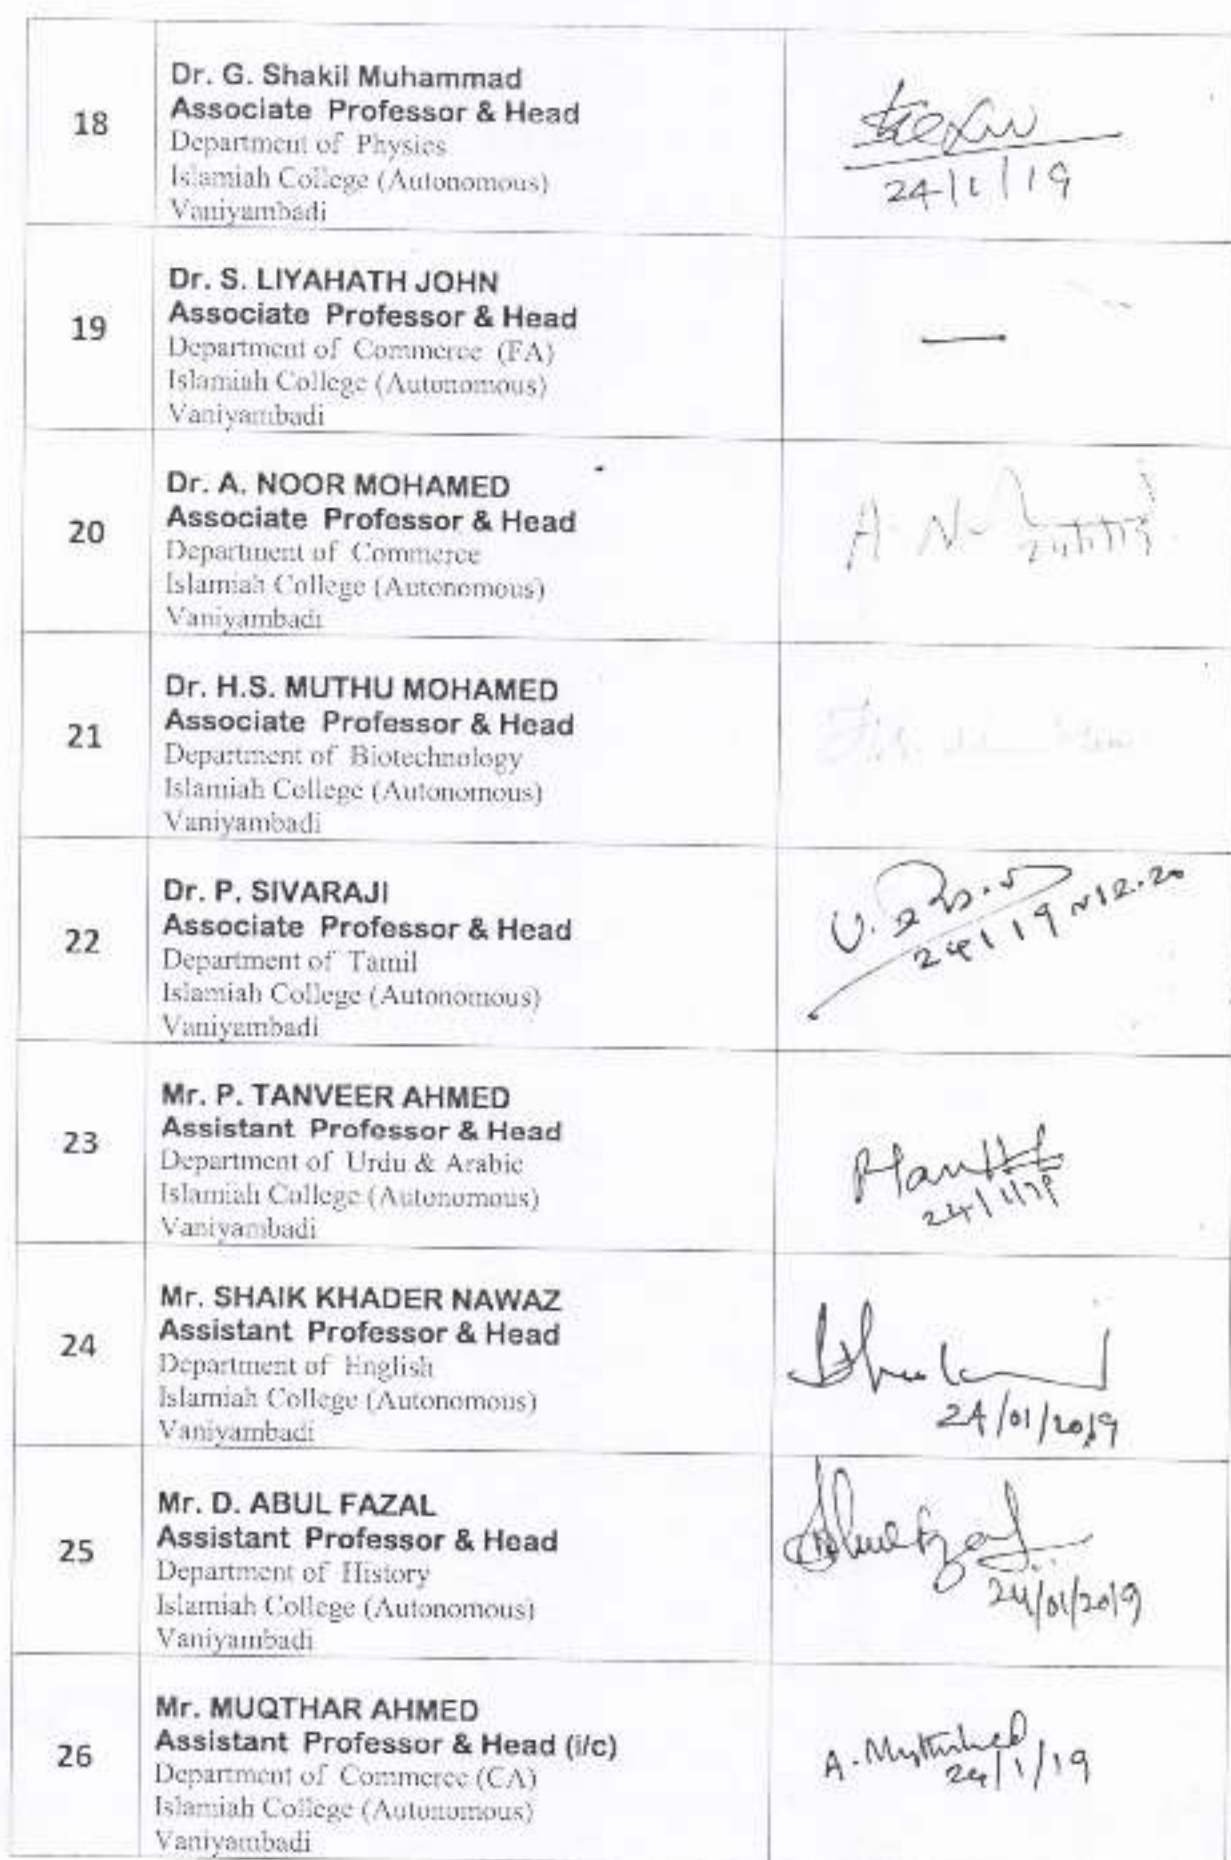 18
Dr. G. Shakil Muhammad
Associate Professor & Head
Department of Physics
Islamiah College (Autonomous)
Vaniyambadi
24/1/19
19
Dr. S. LIYAHATH JOHN
Associate Professor & Head
Department of Commerce (FA)
Islamiah College (Autonomous)
Vaniyambadi
—
20
Dr. A. NOOR MOHAMED
Associate Professor & Head
Department of Commerce
Islamiah College (Autonomous)
Vaniyambadi
A. N.
24/1/19
21
Dr. H.S. MUTHU MOHAMED
Associate Professor & Head
Department of Biotechnology
Islamiah College (Autonomous)
Vaniyambadi
22
Dr. P. SIVARAJI
Associate Professor & Head
Department of Tamil
Islamiah College (Autonomous)
Vaniyambadi
24/1/19 12.20
23
Mr. P. TANVEER AHMED
Assistant Professor & Head
Department of Urdu & Arabic
Islamiah College (Autonomous)
Vaniyambadi
24/1/19
24
Mr. SHAIK KHADER NAWAZ
Assistant Professor & Head
Department of English
Islamiah College (Autonomous)
Vaniyambadi
24/01/2019
25
Mr. D. ABUL FAZAL
Assistant Professor & Head
Department of History
Islamiah College (Autonomous)
Vaniyambadi
24/01/2019
26
Mr. MUQTHAR AHMED
Assistant Professor & Head (i/c)
Department of Commerce (CA)
Islamiah College (Autonomous)
Vaniyambadi
A.
24/1/19